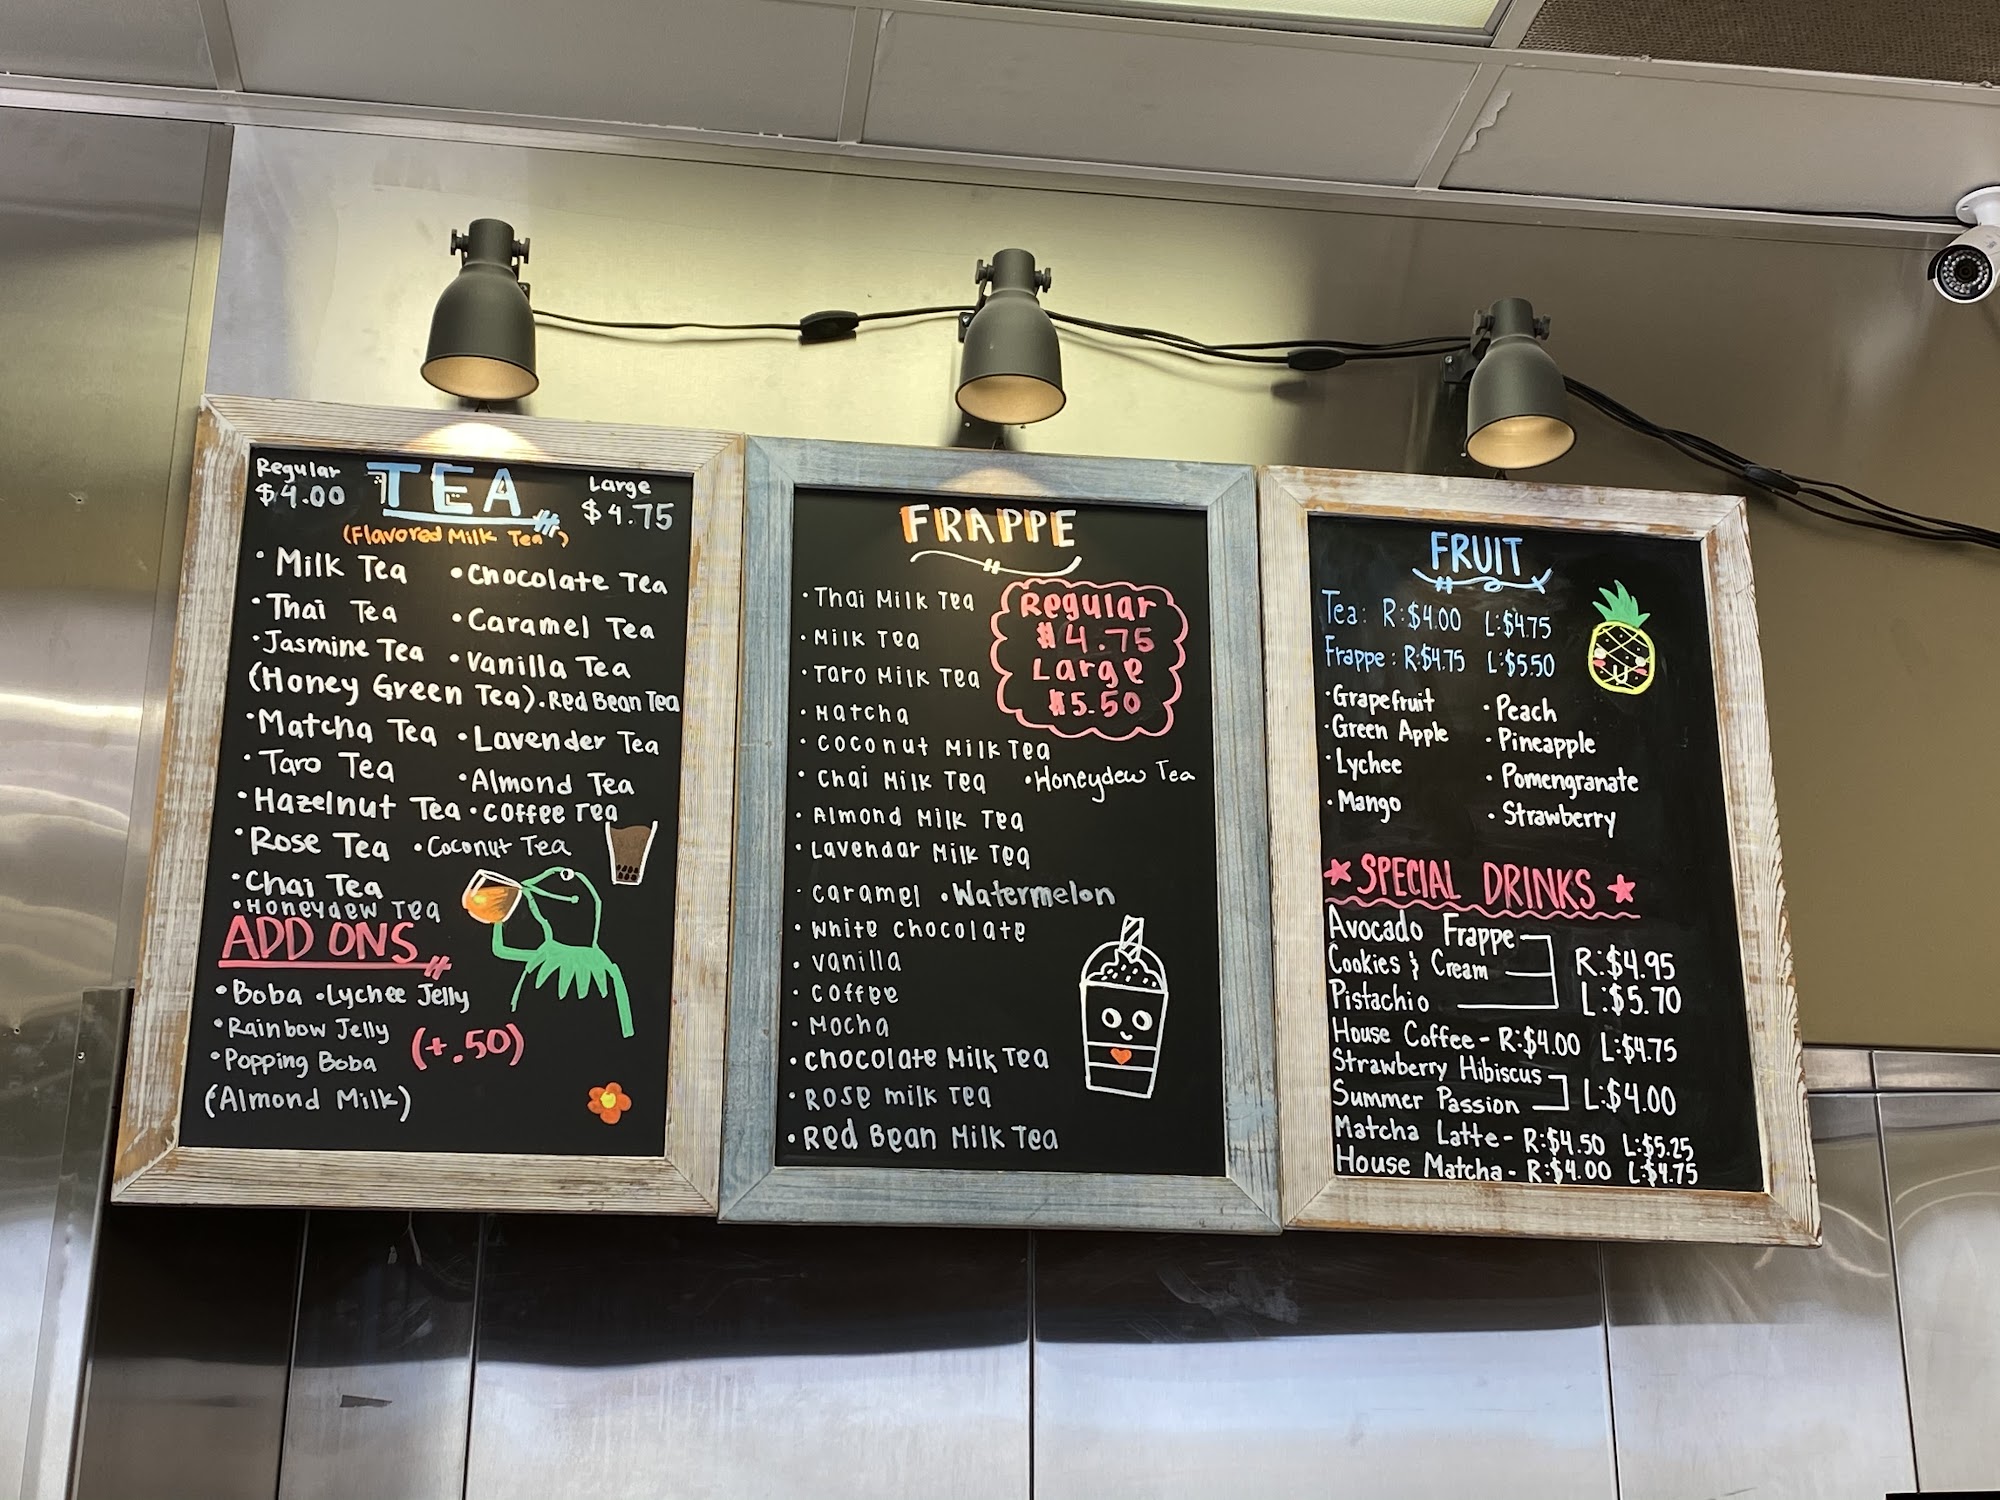 Regular TEA Large
$4.00 $4.75
(Flavored Milk Tea)
• Milk Tea • Chocolate Tea
• Thai Tea • Caramel Tea
• Jasmine Tea • Vanilla Tea
(Honey Green Tea) • Red Bean Tea
• Matcha Tea • Lavender Tea
• Taro Tea • Almond Tea
• Hazelnut Tea • Coffee Tea
• Rose Tea • Coconut Tea
• Chai Tea
• Honeydew Tea
ADD ONS
• Boba • Lychee Jelly
• Rainbow Jelly
• Popping Boba (+.50)
(Almond Milk)
FRAPPE
• Thai Milk Tea
• Milk Tea
• Taro Milk Tea
• Matcha
Regular
$4.75
Large
$5.50
• Coconut Milk Tea
• Chai Milk Tea • Honeydew Tea
• Almond Milk Tea
• Lavendar Milk Tea
• Caramel • Watermelon
• White Chocolate
• Vanilla
• Coffee
• Mocha
• Chocolate Milk Tea
• Rose Milk Tea
• Red Bean Milk Tea
FRUIT
Tea: R:$4.00 L:$4.75
Frappe: R:$4.75 L:$5.50
• Grapefruit • Peach
• Green Apple • Pineapple
• Lychee • Pomengranate
• Mango • Strawberry
SPECIAL DRINKS
Avocado Frappe
Cookies & Cream R:$4.95
Pistachio L:$5.70
House Coffee - R:$4.00 L:$4.75
Strawberry Hibiscus
Summer Passion L:$4.00
Matcha Latte - R:$4.50 L:$5.25
House Matcha - R:$4.00 L:$4.75